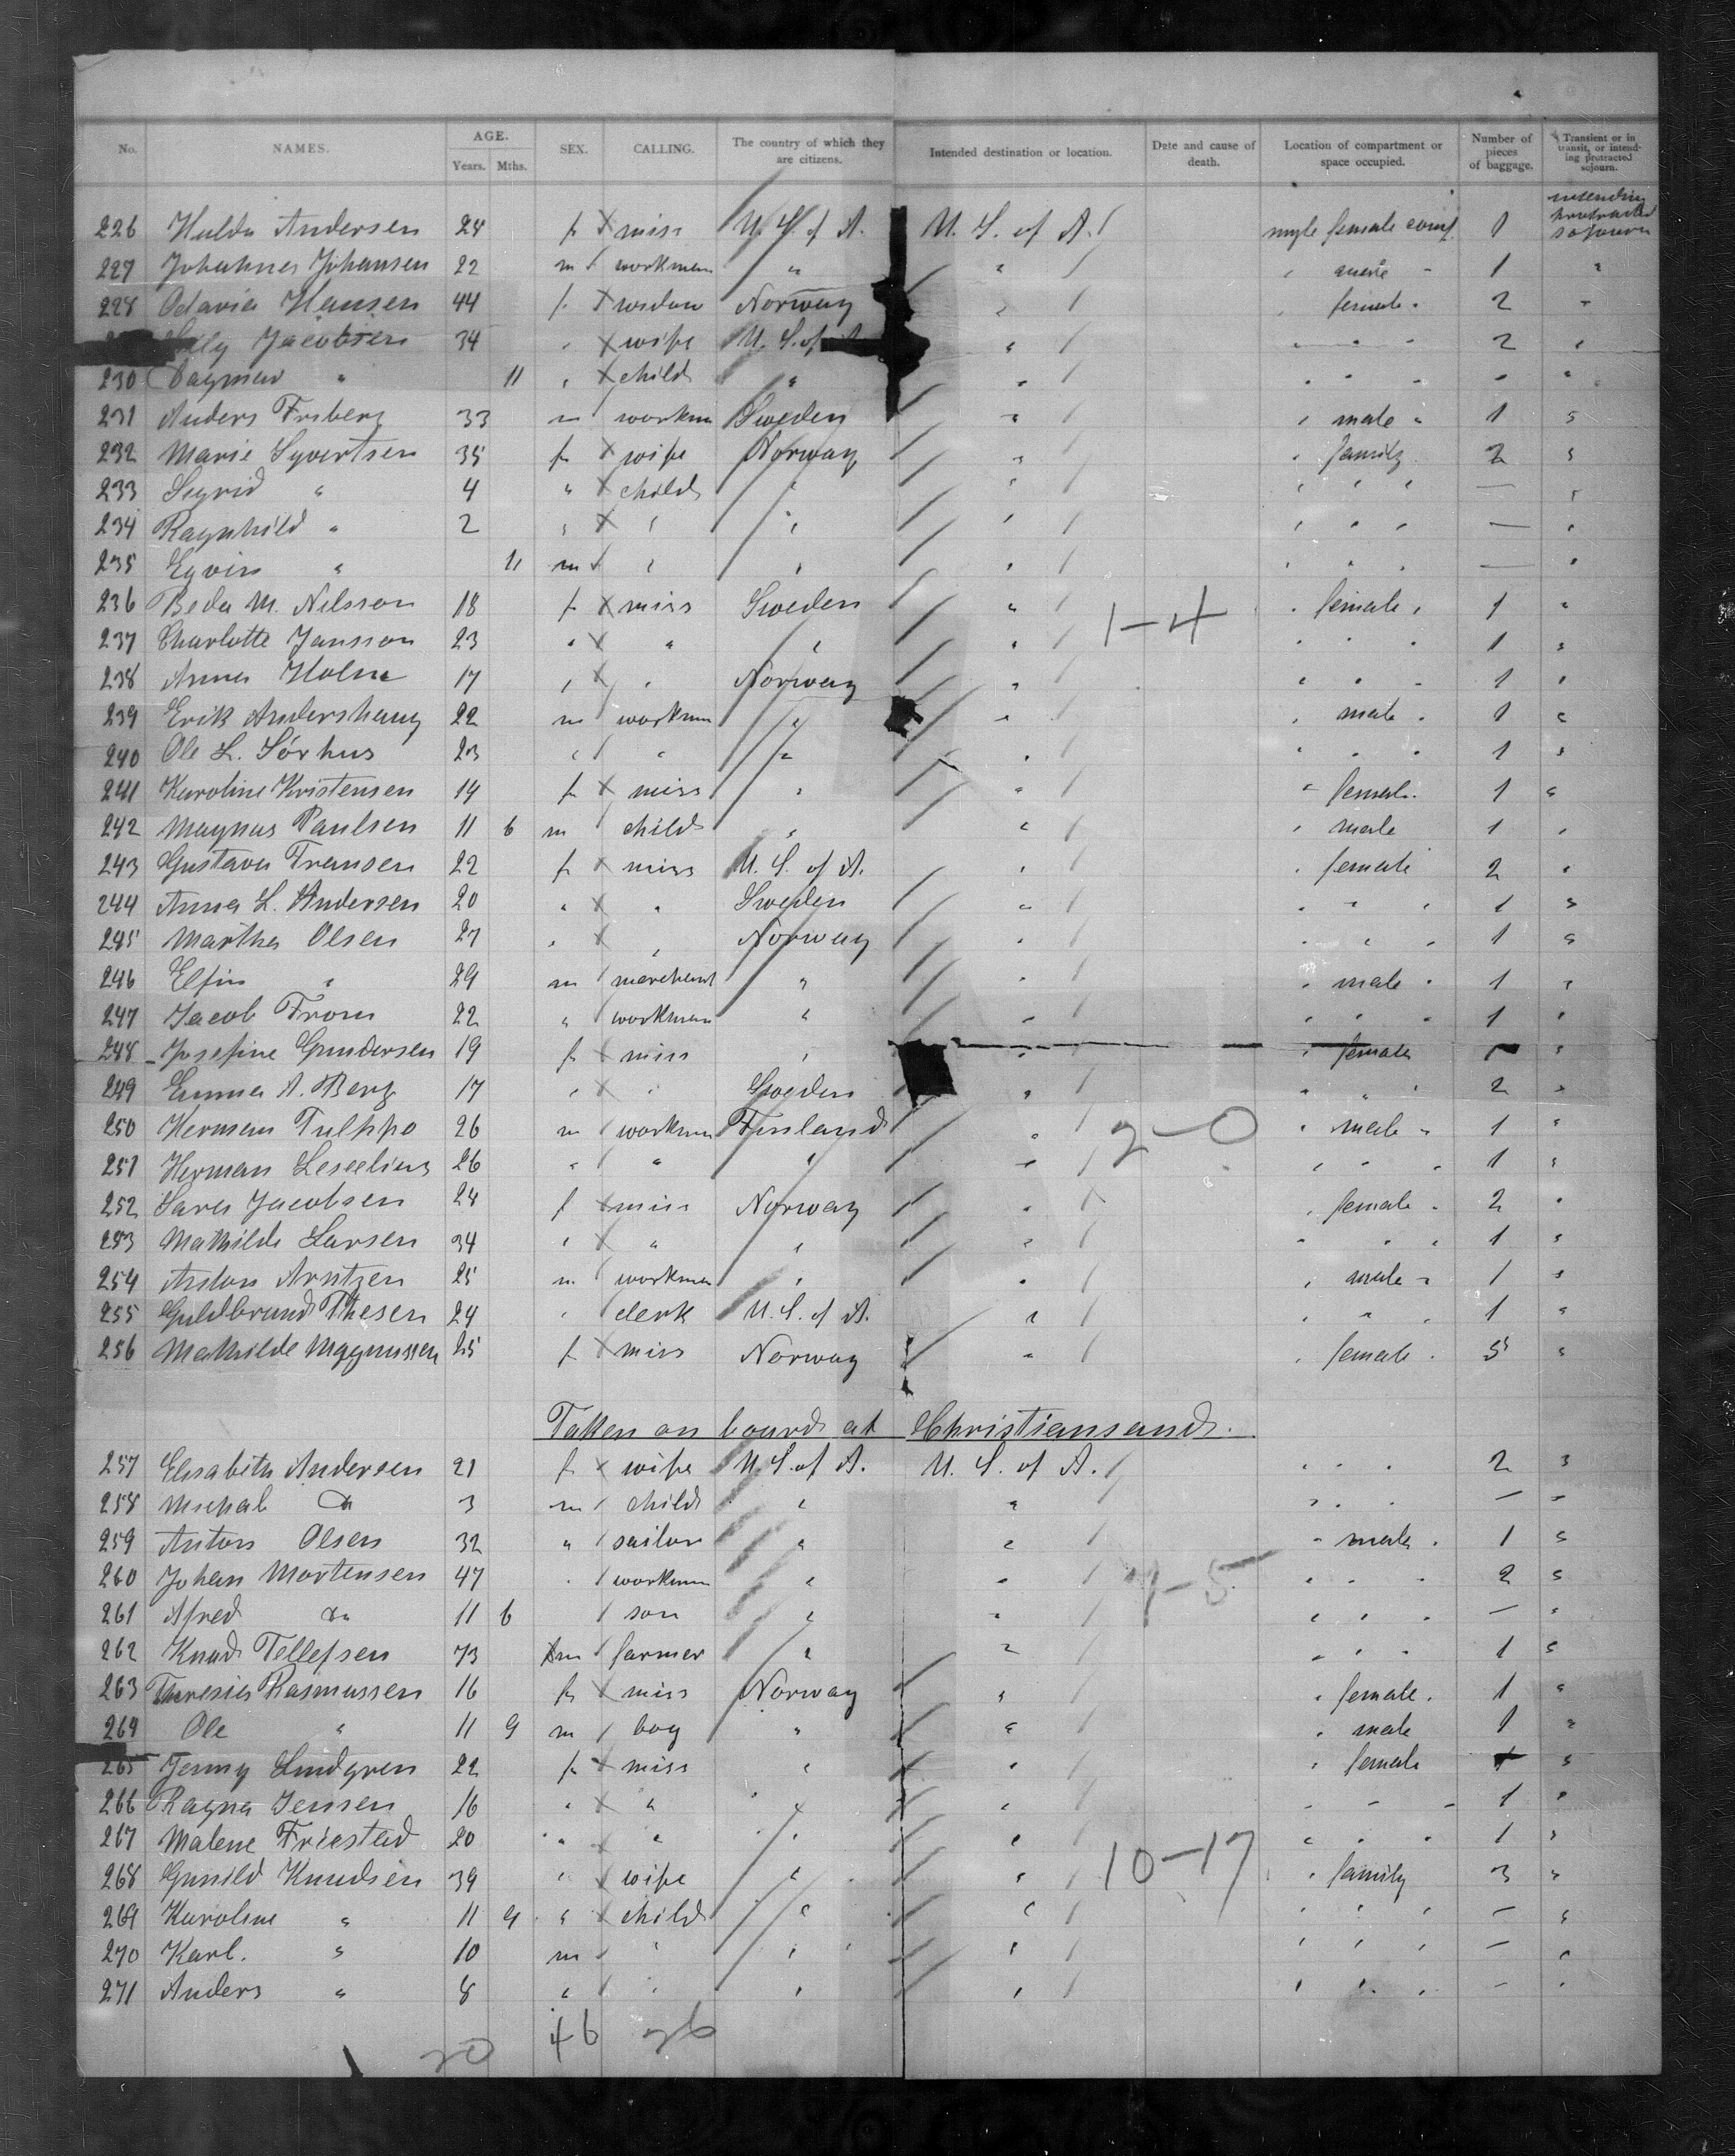 No. NAMES. AGE. Years. Mths. SEX. CALLING. The country of which they are citizens. Intended destination or location. Date and cause of death. Location of compartment or space occupied. Number of pieces of baggage. Transient or in transit, or intending protracted sojourn.
226 Hulda Andersen 24 f x miss U. S. of A. U. S. of A. single female comp. 1 intending protracted sojourn
227 Johannes Johansen 22 m workman " " " male " 1 "
228 Octavia Hansen 44 f x widow Norway " " female " 2 "
Jacobsen 34 " x wife U. S. of A. " " " " 2 "
230 Dagmar " 11 " x child " " " " " - "
231 Anders Friberg 33 m workm Sweden " " male " 1 "
232 Marie Syvertsen 35 f x wife Norway " " family 2 "
233 Sigrid " 4 " x child " " " " " — "
234 Ragnhild " 2 " x " " " " " " — "
235 " 11 m " " " " " " — "
236 Beda M. Nilsson 18 f x miss Sweden " 1-4 " female " 1 "
237 Charlotte Jansson 23 " x " " " " " 1 "
238 Anna Holm 17 " x " Norway " " " " 1 "
239 Erik Andershaug 22 m workman " " " male " 1 "
240 Ole L. Sörhus 23 " " " " " " " 1 "
241 Karoline Kristensen 19 f x miss " " " female " 1 "
242 Magnus Paulsen 11 6 m child " " " male 1 "
243 Gustava Fransen 22 f x miss U. S. of A. " " female 2 "
244 Anna L. Andersen 20 " x " Sweden " " " " 1 "
245 Martha Olsen 27 " x " Norway " " " " 1 "
246 " 29 m merchant " " " male " 1 "
247 Jacob From 22 " workman " " " " " 1 "
248 Josefine Gundersen 19 f x miss " " " female 1 "
249 Emma A. Berg 17 " x " Sweden " " " " 2 "
250 Herman Tulppo 26 m workman Finland " 2-0 " male " 1 "
251 Herman 26 " " " " " " " 1 "
252 Sara Jacobsen 24 f x miss Norway " " female " 2 "
253 Mathilde Larsen 34 " x " " " " " " 1 "
254 Anton Arntzen 25 m workman " " " male " 1 "
255 Guldbrand Thesen 24 " clerk U. S. of A. " " " " 1 "
256 Mathilde Magnussen 25 f x miss Norway " " female " 5 "
Taken on board at Christiansand.
257 Elisabeth Andersen 21 f x wife U. S. of A. U. S. of A. " " " 2 "
258 Do 3 m child " " " " " — "
259 Anton Olsen 32 " sailor " " " male " 1 "
260 Johan Mortensen 47 " workman " " 7-5 " " " 2 "
261 Alfred Do 11 6 son " " " " " — "
262 Knud Tellefsen 73 m farmer " " " " " 1 "
263 Theresia Rasmussen 16 f x miss Norway " " female " 1 "
264 Ole " 11 9 m boy " " " male 1 "
265 Jenny Lindgren 22 f x miss " " " female 1 "
266 Ragna Jensen 16 " x " " " " " " 1 "
267 Malene Friestad 20 " x " " " " " " 1 "
268 Gunild Knudsen 39 " x wife " " 10-17 " family 3 "
269 Karoline " 11 9 " x child " " " " " — "
270 Karl. " 10 m " " " " " " — "
271 Anders " 8 " " " " " " " - "
20 46 26